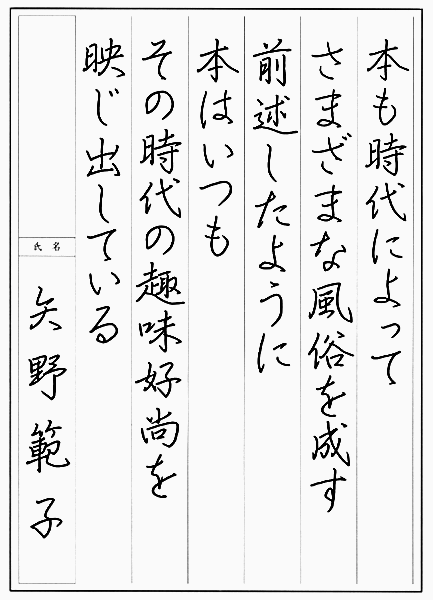 本も時代によって
さまざまな風俗を成す
前述したように
本はいつも
その時代の趣味好尚を
映じ出している
氏名
矢野範子